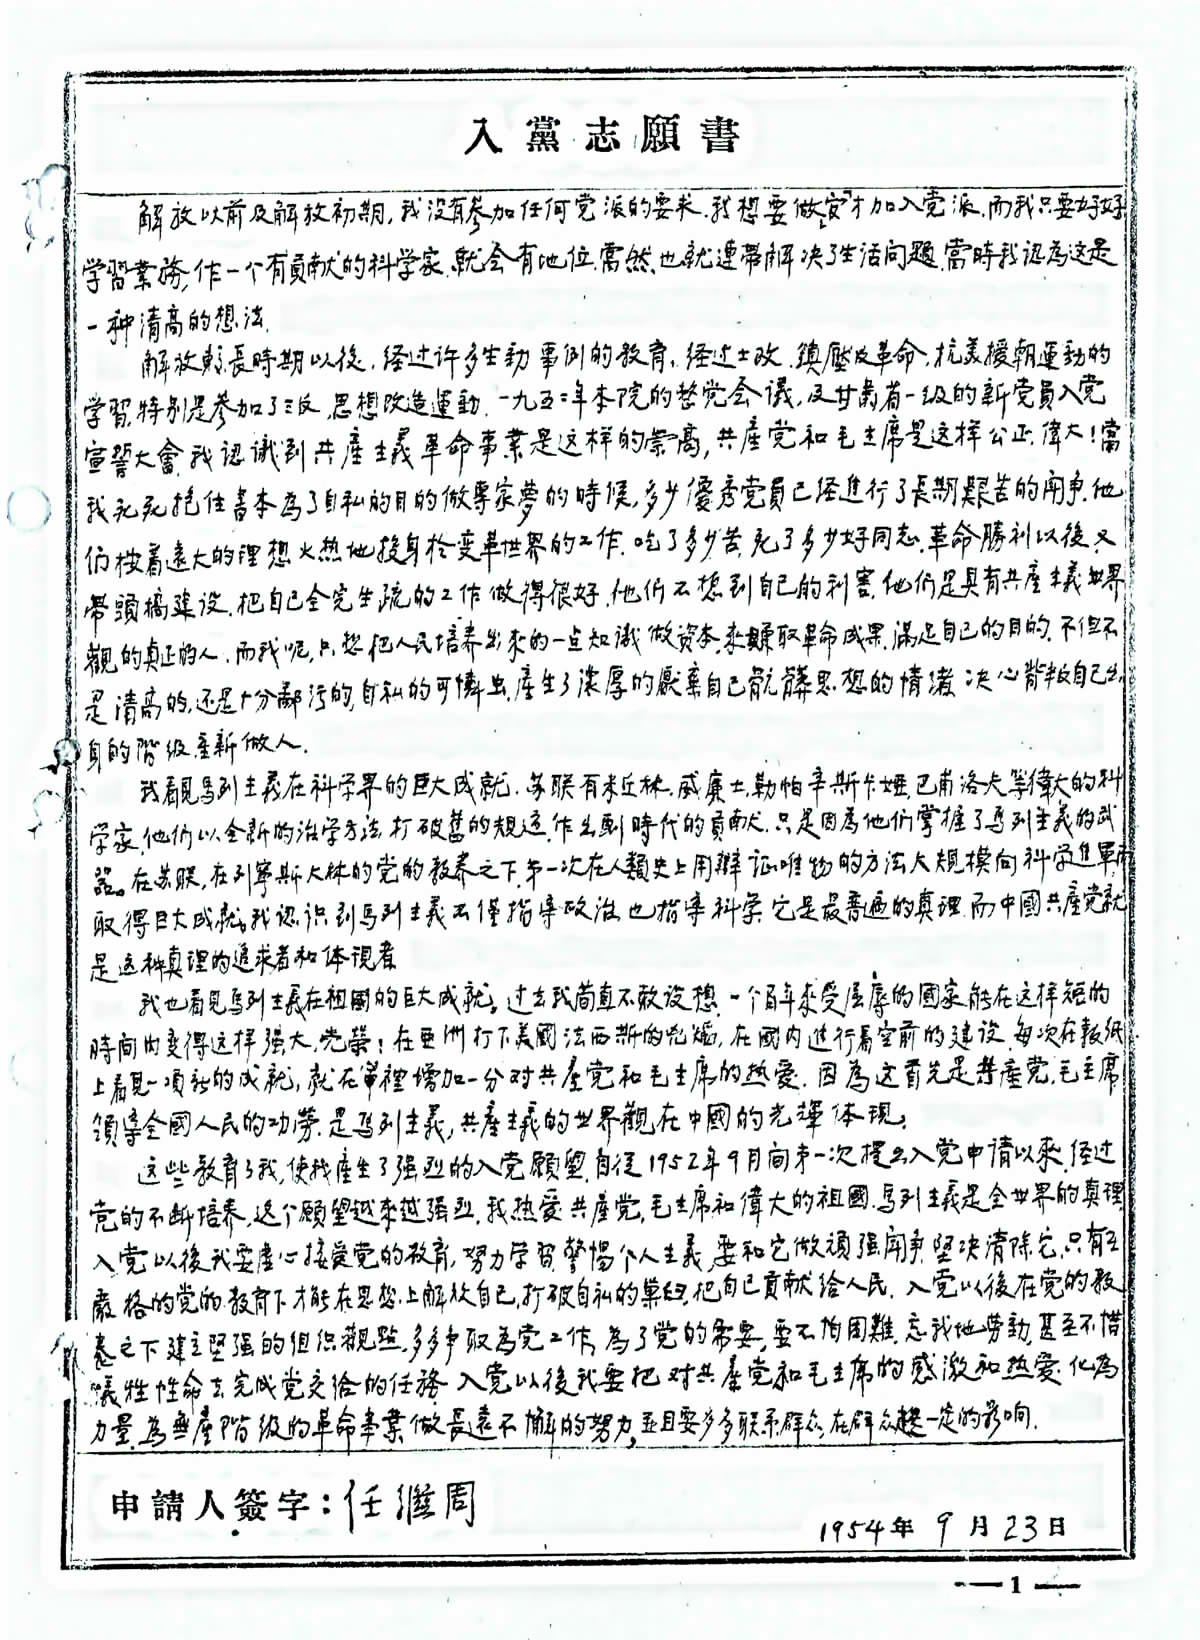 入黨志願書
解放以前及解放初期，我没有参加任何党派的要求，我想要做官才加入党派，而我只要好好
学習業務，作一个有貢献的科学家，就会有地位，當然也就連帶解决了生活问题，當時我認為这是
一种清高的想法。
解放較長時期以後，经过许多生動事例的教育，经过土改，鎮壓反革命，抗美援朝運動的
学習，特别是参加了三反，思想改造運動，一九五二年本院的整党会議，及甘肃省一级的新党員入党
宣誓大會，我认識到共產主義革命事業是这样的崇高，共產党和毛主席是这样公正，偉大！當
我死死抱住書本為了自私的目的做專家夢的時候，多少優秀党員已经進行了長期艱苦的闹争，他
们按着遠大的理想火热地投身於变革世界的工作，吃了多少苦，死了多少好同志，革命勝利以後，又
带頭搞建设，把自己全完生疏的工作做得很好，他们不想到自己的利害，他们是具有共產主義世界
觀的真正的人，而我呢，只想把人民培养出來的一点知识做资本，來賺取革命成果，滿足自己的目的，不但不
是清高的，还是十分鄙污的，自私的可憐虫，產生了濃厚的厭棄自己骯髒思想的情緒，决心背叛自己出
身的階级，重新做人。
我看見馬列主義在科学界的巨大成就，苏联有米丘林，威廉士，勒帕辛斯卡婭，巴甫洛夫等偉大的科
学家，他们以全新的治学方法，打破舊的规适，作出劃時代的貢献，只是因為他们掌握了馬列主義的武
器。在苏联，在列寧斯大林的党的教养之下，第一次在人類史上用辯证唯物的方法大规模向科学進軍而
取得巨大成就。我认识到馬列主義不僅指導政治，也指導科学，它是最普遍的真理，而中國共產党就
是这种真理的追求者和体現者
我也看見馬列主義在祖國的巨大成就。过去我简直不敢设想，一个百年來受屈辱的國家能在这样短的
時间内变得这样强大，光榮！在亚洲打下美國法西斯的兇焰，在國内進行着空前的建设，每次在報纸
上看見一項新的成就，就在心裡增加一分对共產党和毛主席的热爱，因為这首先是共產党，毛主席
領導全國人民的功勞，是馬列主義，共產主義的世界觀在中國的光輝体現。
这些教育了我，使我產生了强烈的入党願望，自從1952年9月间第一次提出入党申请以來，经过
党的不断培养，这个願望越來越强烈，我热爱共產党，毛主席和偉大的祖國，馬列主義是全世界的真理，
入党以後我要虚心接受党的教育，努力学習，警惕个人主義，要和它做頑强闹争，堅决清除它，只有在
嚴格的党的教育下才能在思想上解放自己，打破自私的巢臼，把自己貢献给人民，入党以後在党的教
养之下建立堅强的组织觀点，多多争取為党工作，為了党的需要，要不怕困難，忘我地劳動，甚至不惜
犧牲性命去完成党交给的任務，入党以後我要把对共產党和毛主席的感激和热爱，化為
力量，為無產階级的革命事業做長遠不懈的努力，並且要多多联系群众，在群众起一定的影响。
申請人簽字：任继周
1954年9月23日
— 1 —